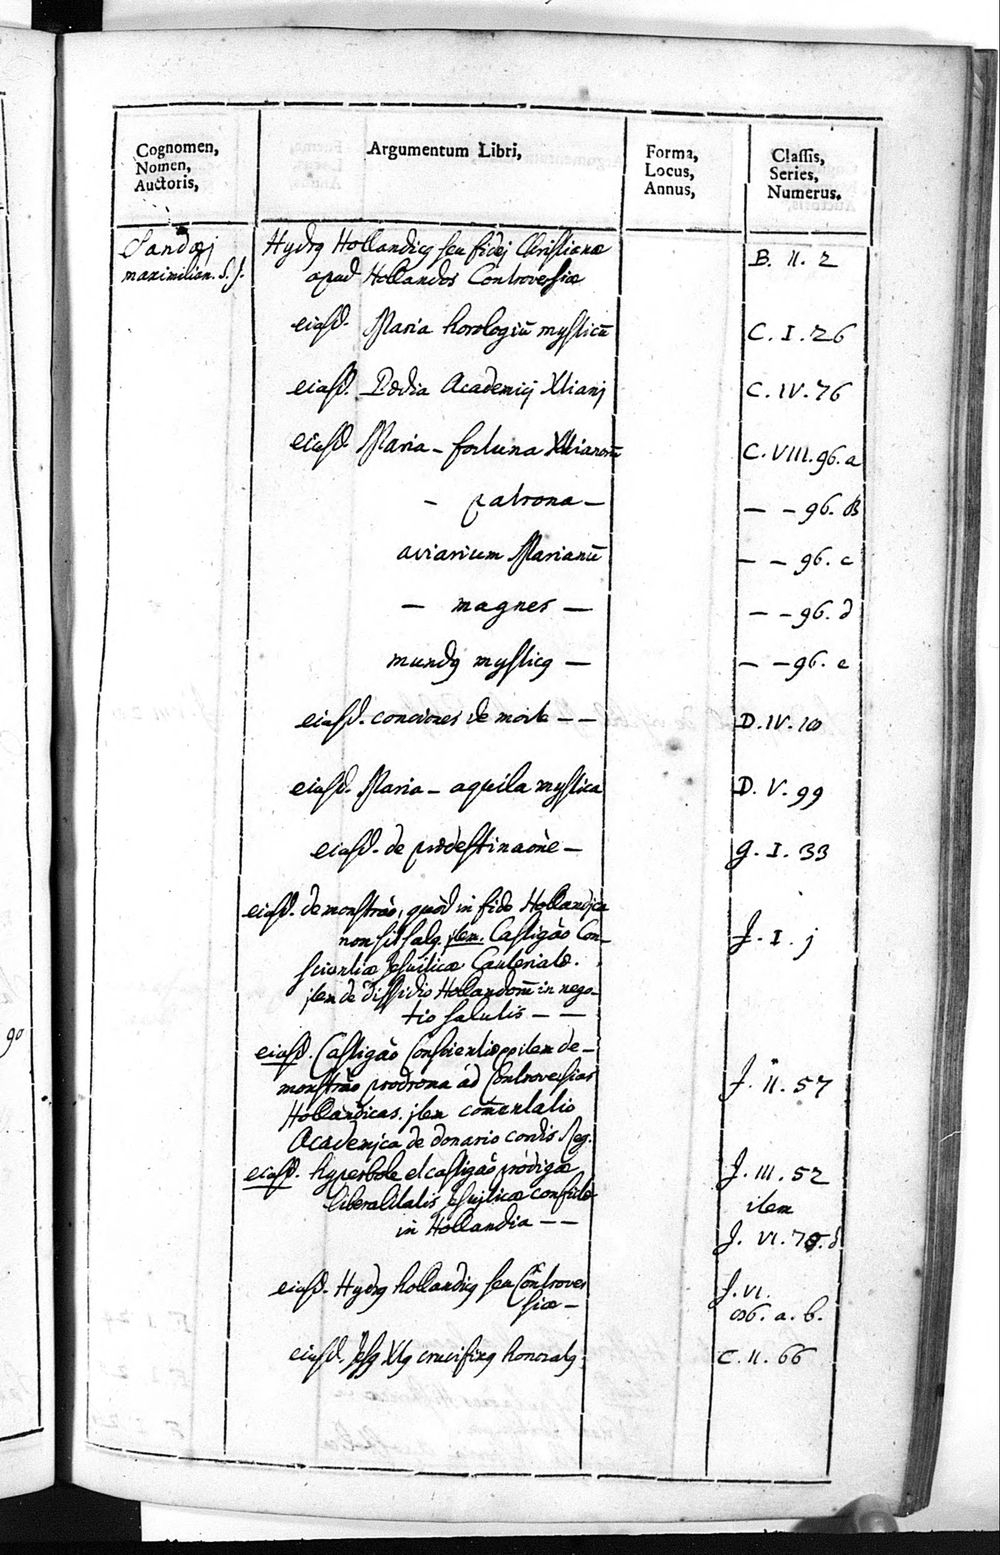 Cognomen,
Nomen,
Auctoris,
Argumentum Libri,
Forma,
Locus,
Annus,
Classis,
Series,
Numerus.
Sandæj
maximilian. S. J.
Hydrꝯ Hollandicꝯ seu fidej Christianæ
apud Hollandos Controversiæ
B. II. 2
eiusd. Maria horologiū mysticū
C. I. 26
eiusd. Pædia Academicj Xtianj
C. IV. 76
eiusd. Maria - fortuna Xtianorū
C. VIII. 96. a
- patrona -
— — 96. B
aviarium Marianū
— — 96. c
— magnes —
— — 96. d
mundꝯ mysticꝯ —
— — 96. e
eiusd. conciones de morte — —
D. IV. 10
eiusd. Maria - aquila mystica
D. V. 99
eiusd. de prædestinaōne —
G. I. 33
eiusd. demonstrāo, quòd in fide Hollandica
non sit salꝯ. jtem. Castigāo Con-
scientiæ Jesuiticæ Cauteriatæ.
jtem de dissidio Hollandorū in nego-
tio salutis — —
J. I. j
eiusd. Castigāo Conscientiæ item de-
monstrāo prodroma ad Controversias
Hollandicas. jtem com̄entatio
Academica de donario cordis Reg.
J. II. 57
eiusd. hyperbole et castigāo prodigæ
liberalitatis Jesuiticæ confictæ
in Hollandia — —
J. III. 52
item
J. VI. 78. d
eiusd. Hydrꝯ hollandicꝯ seu Controver
siæ —
J. VI.
a. b.
eiusd. Jesꝯ Xtꝯ crucifixꝯ honoratꝯ
C. II. 66
90